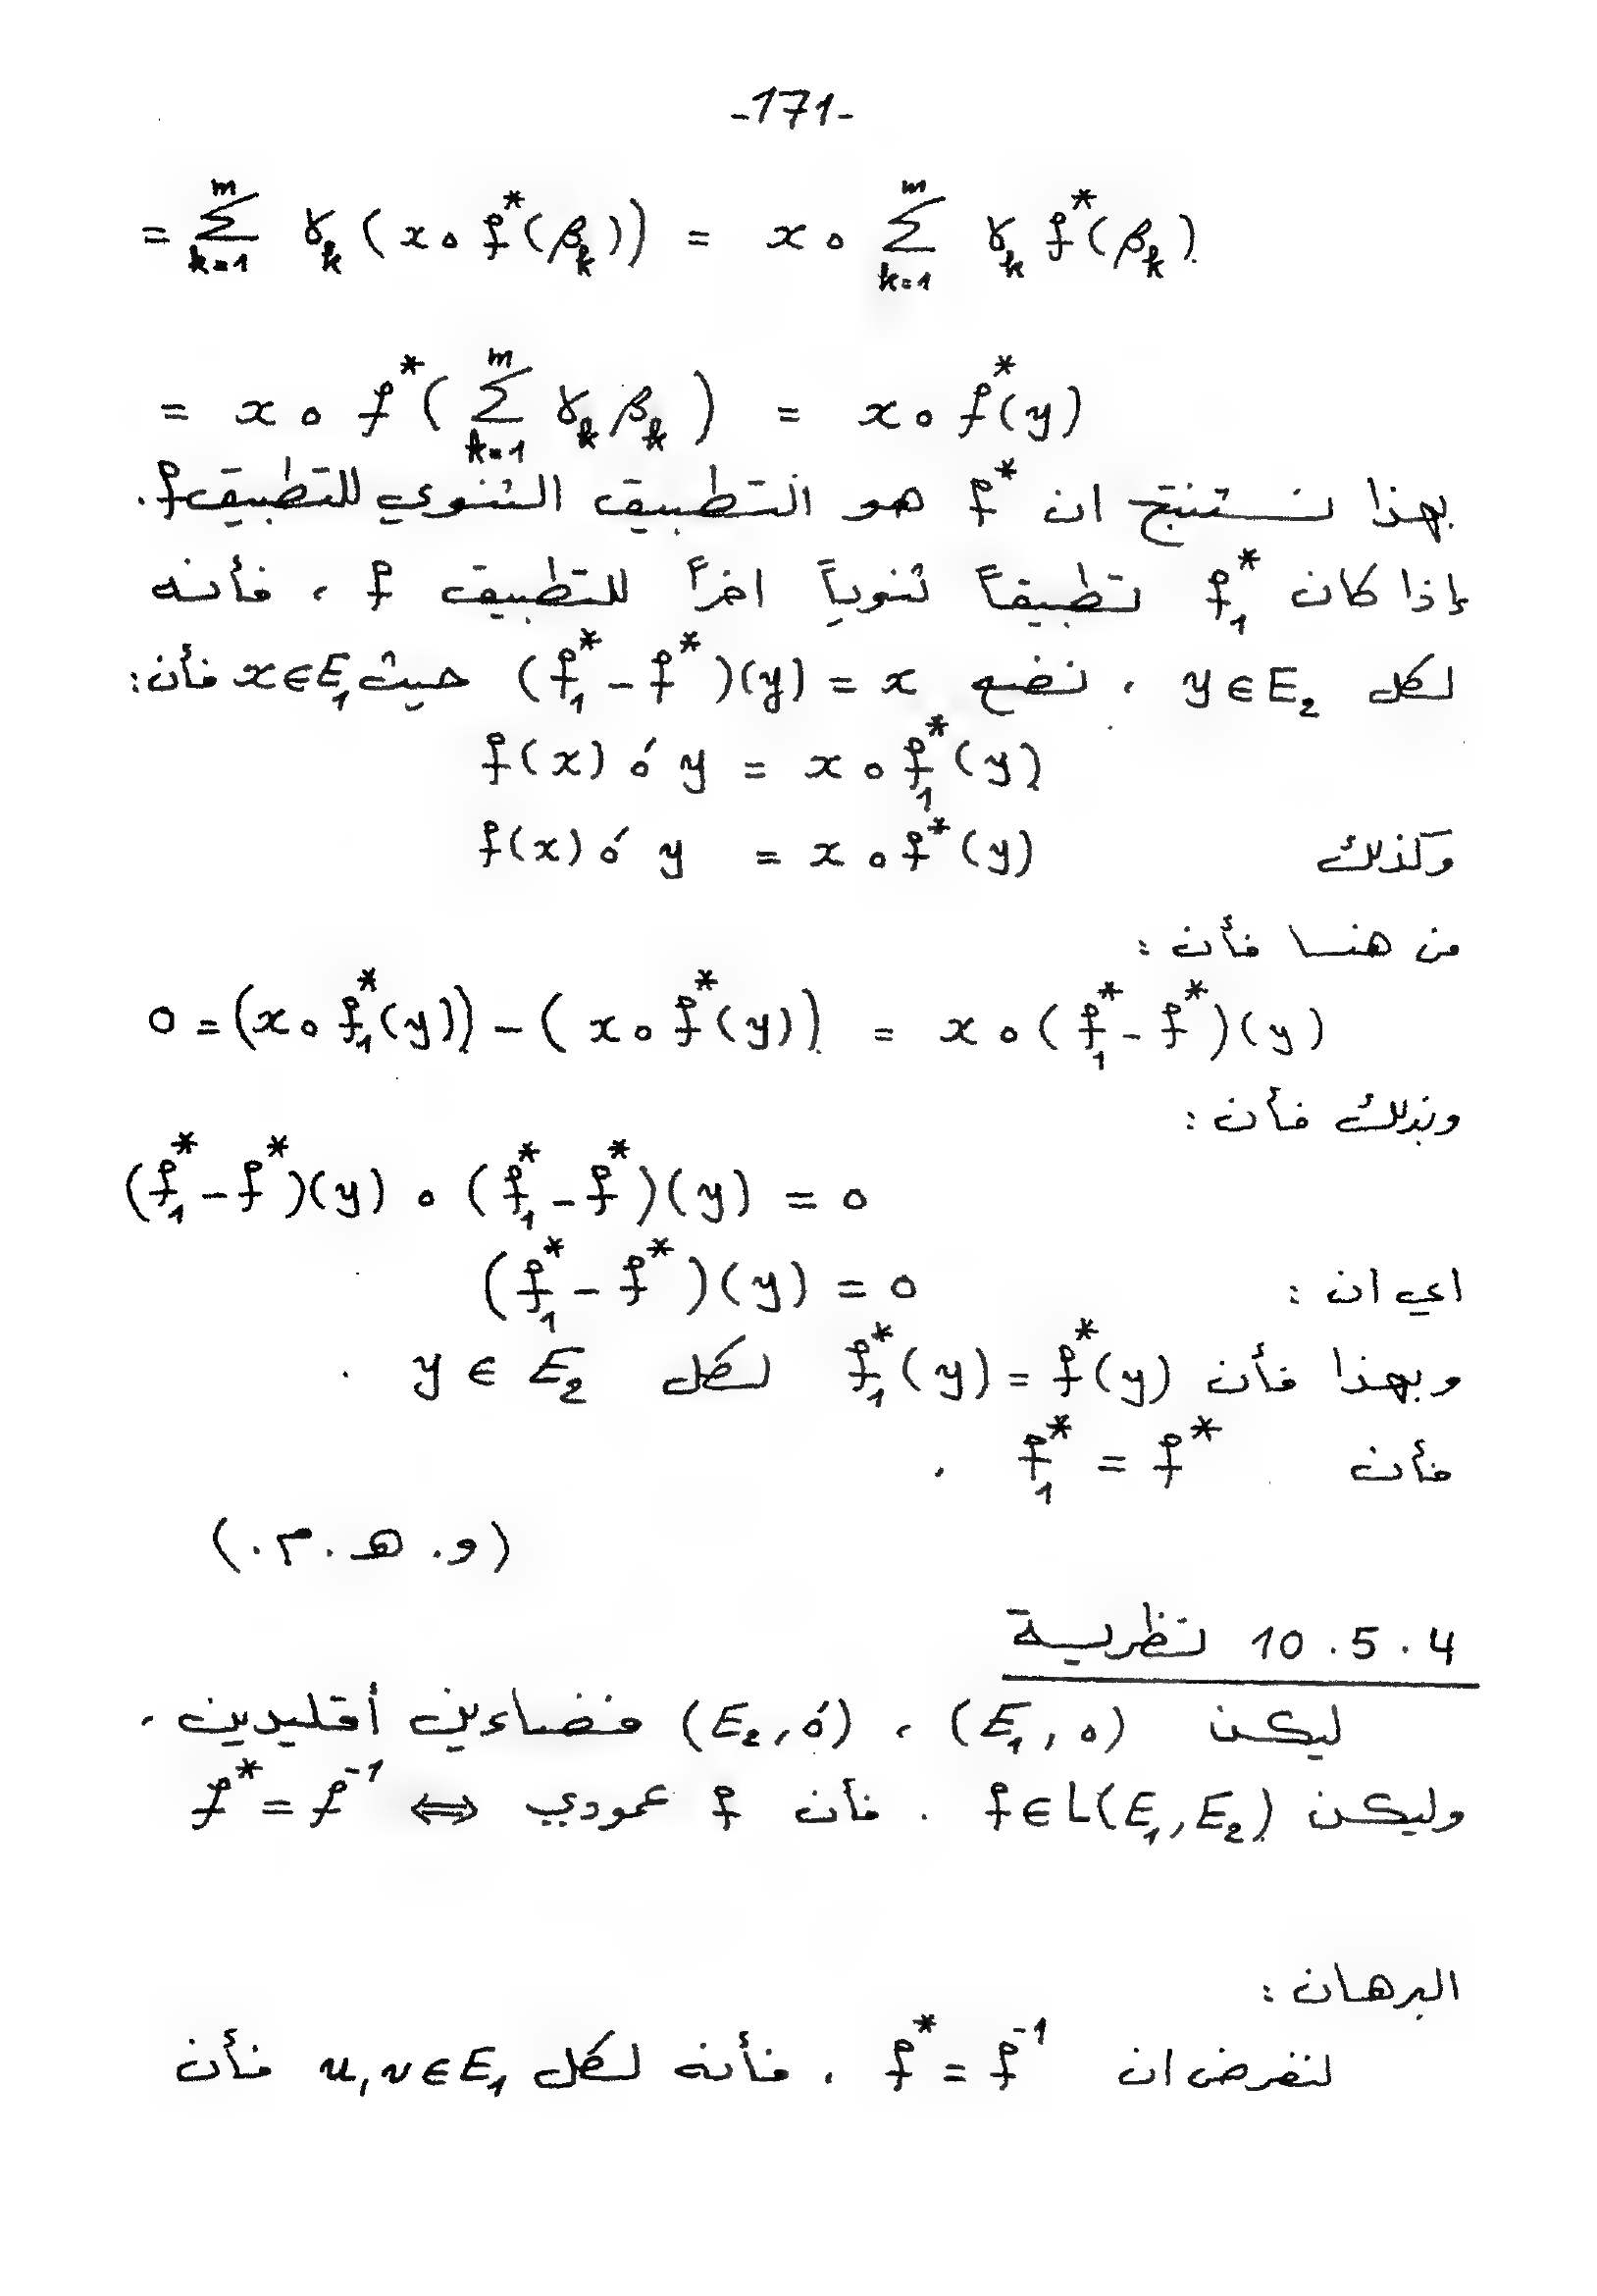 -171-
= ∑_{k=1}^{m} γ_k (x ∘ f*(β_k)) = x ∘ ∑_{k=1}^{m} γ_k f*(β_k)
= x ∘ f*(∑_{k=1}^{m} γ_k β_k) = x ∘ f*(y)
بهذا نستنتج ان f* هو التطبيق الثنوي للتطبيق f.
إذا كان f₁* تطبيقاً ثنوياً اخراً للتطبيق f ، فأنه
لكل y ∈ E₂ ، نضع (f₁* - f*)(y) = x حيث x ∈ E₁ فأن:
f(x) ∘́ y = x ∘ f₁*(y)
وكذلك f(x) ∘́ y = x ∘ f*(y)
من هنا فأن :
0 = (x ∘ f₁*(y)) - (x ∘ f*(y)) = x ∘ (f₁* - f*)(y)
وبذلك فأن :
(f₁* - f*)(y) ∘ (f₁* - f*)(y) = 0
اي ان : (f₁* - f*)(y) = 0
وبهذا فأن f₁*(y) = f*(y) لكل y ∈ E₂ .
فأن f₁* = f* .
(و. هـ. م.)
10.5.4 نظرية
ليكن (E₁, ∘) ، (E₂, ∘́) فضاءين أقليدين ،
وليكن f ∈ L(E₁, E₂) . فأن f عمودي ⇔ f* = f⁻¹
البرهان :
لنفرض ان f* = f⁻¹ ، فأنه لكل u, v ∈ E₁ فأن